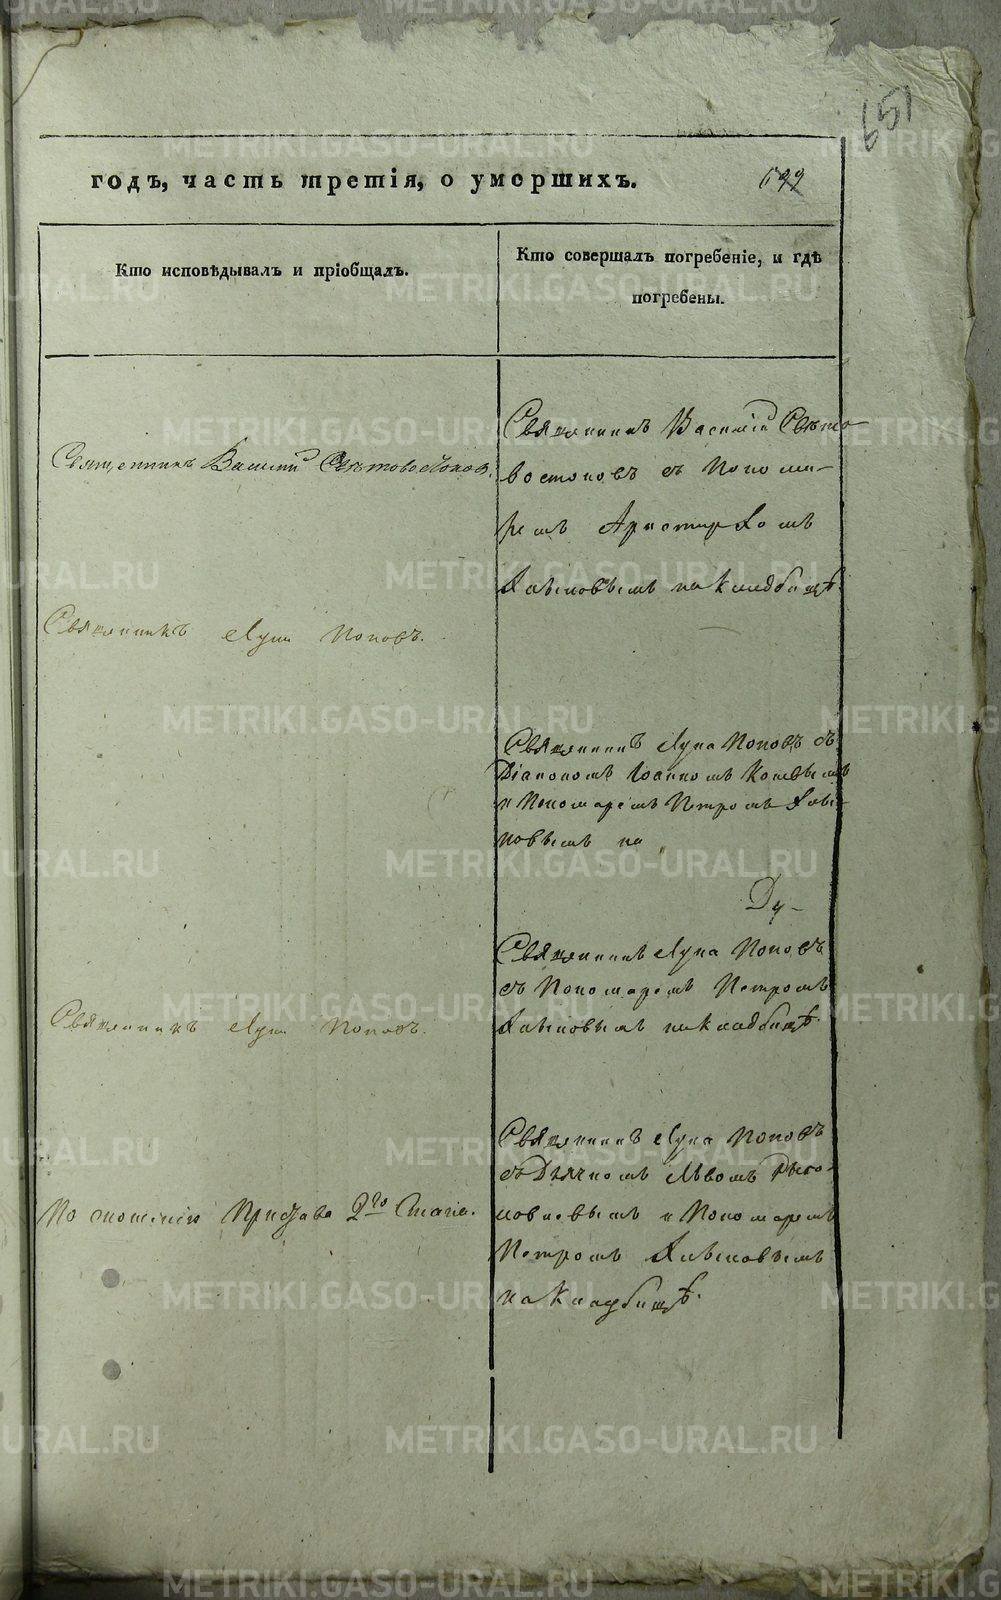 651
годъ, часть третія, о умершихъ.
699
Кто исповѣдывалъ и пріобщалъ.
Кто совершалъ погребеніе, и гдѣ
погребены.
Священникъ Василій Свѣтовостоковъ.
Священникъ Василій Свѣто-
востоковъ съ Понома-
ремъ
на кладбищѣ.
Священникъ Лука Поповъ.
Священникъ Лука Поповъ съ
Діакономъ Іоанномъ
и Пономаремъ Петромъ
на
Священникъ Лука Поповъ
съ Пономаремъ Петромъ
на кладбищѣ.
Священникъ Лука Поповъ.
Священникъ Лука Поповъ
съ Дьячкомъ Львомъ
и Пономаремъ
Петромъ
на кладбищѣ.
По Пристава 2го Стана.
METRIKI.GASO-URAL.RU